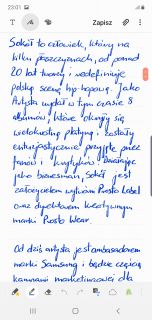 23:01
Zapisz
Sokół to człowiek, który na
kilku płaszczyznach, od ponad
20 lat tworzy i redefiniuje
polską scenę hip-hopową. Jako
Artysta wydał w tym czasie 8
albumów, które okryły się
wielokrotną platyną i zostały
entuzjastycznie przyjęte przez
fanów i krytyków. Działając
jako biznesman, Sokół jest
założycielem wytwórni Prosto Label
oraz dyrektorem kreatywnym
marki Prosto Wear.
Od dziś artysta jest ambasadorem
marki Samsung i będzie częścią
kampanii marketingowej dla